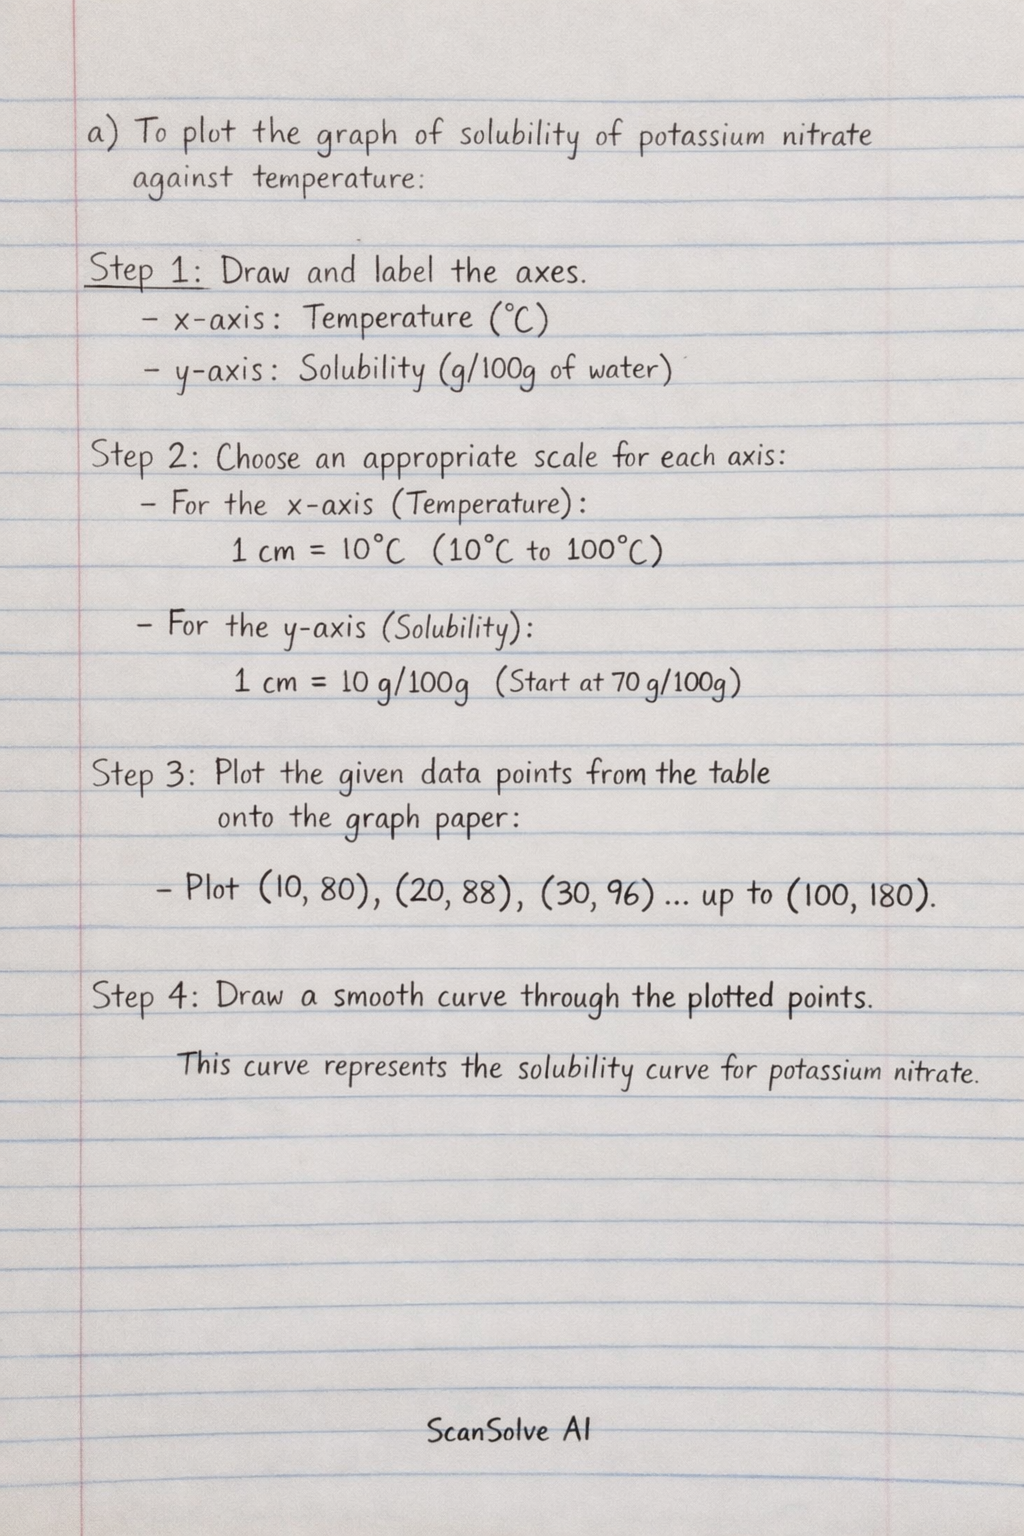 a) To plot the graph of solubility of potassium nitrate
against temperature:
Step 1: Draw and label the axes.
- x-axis: Temperature (°C)
- y-axis: Solubility (g/100g of water)
Step 2: Choose an appropriate scale for each axis:
- For the x-axis (Temperature):
1 cm = 10°C (10°C to 100°C)
- For the y-axis (Solubility):
1 cm = 10 g/100g (Start at 70 g/100g)
Step 3: Plot the given data points from the table
onto the graph paper:
- Plot (10, 80), (20, 88), (30, 96) ... up to (100, 180).
Step 4: Draw a smooth curve through the plotted points.
This curve represents the solubility curve for potassium nitrate.
ScanSolve AI